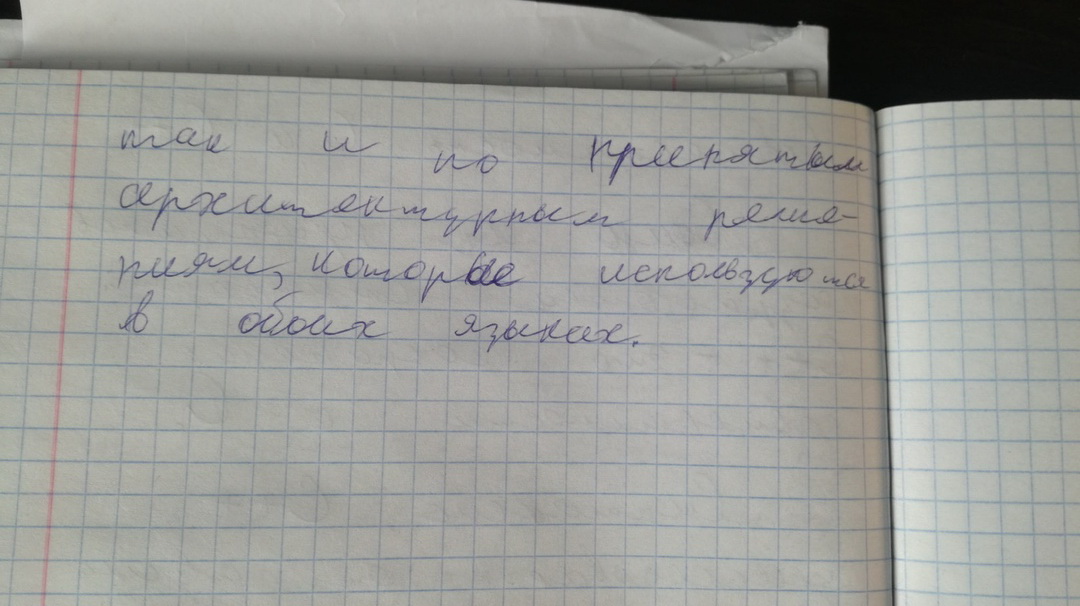 так и по принятым
архитектурным реше-
ниям, которые используются
в обоих языках.